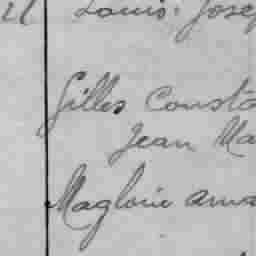 Louis. Josep
Gilles Consta
Jean Ma
Magloire Arma